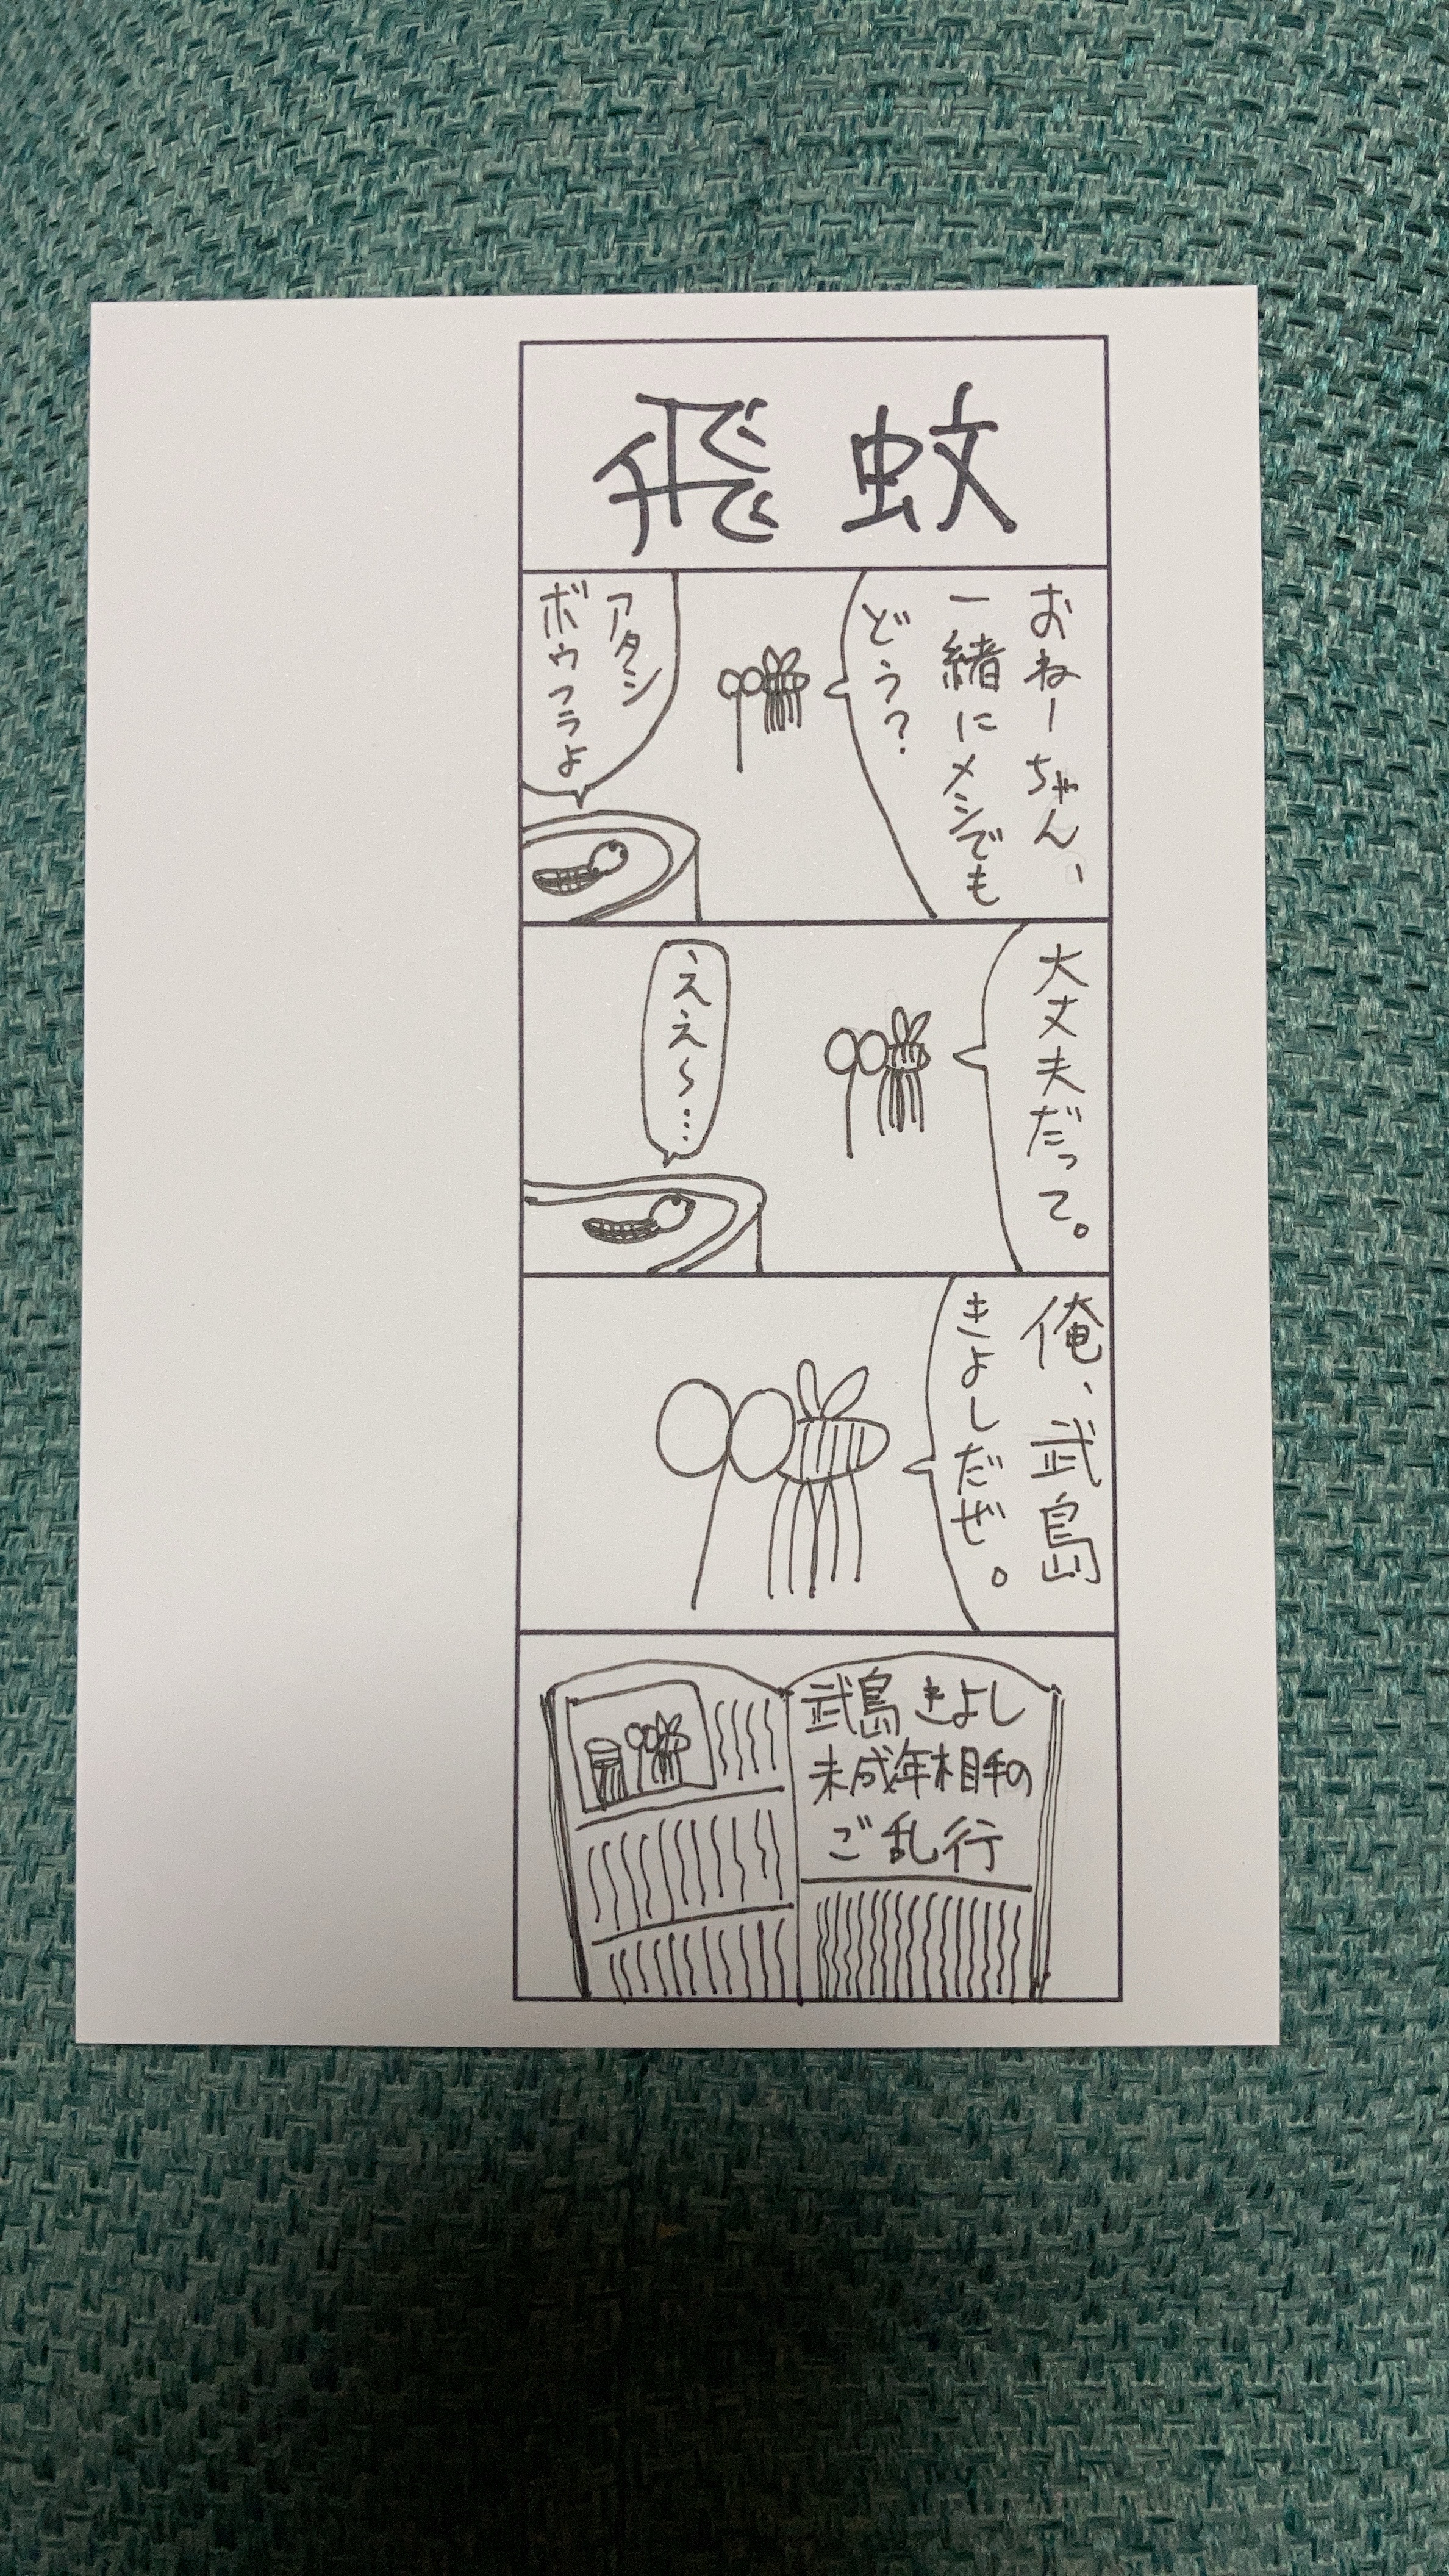 飛蚊
おねーちゃん、
一緒にメシでも
どう？
アタシ
ボウフラよ
大丈夫だって。
ええ〜…
俺、武島
きよしだぜ。
武島きよし
未成年相手の
ご乱行